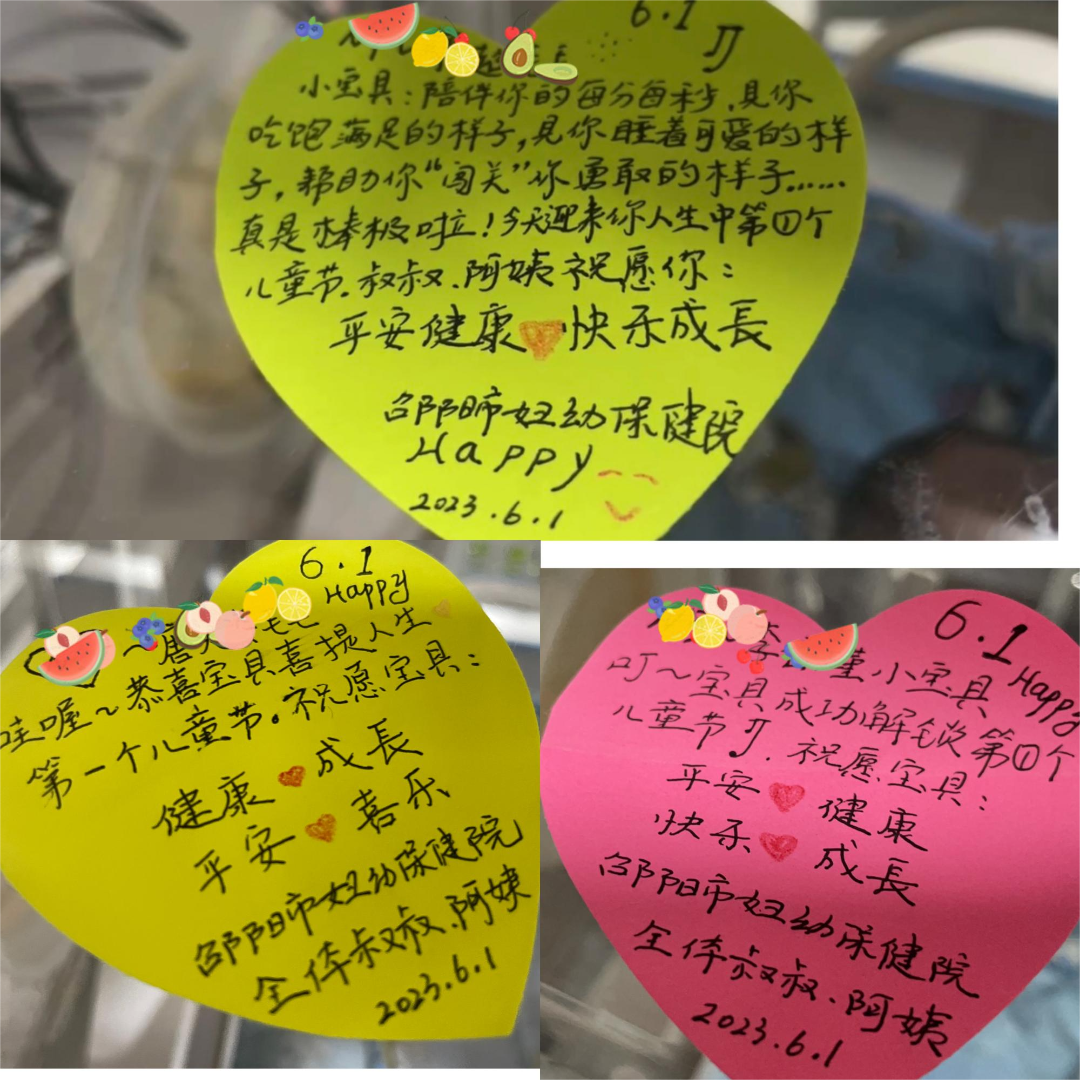 6.1
小宝贝：陪伴你的每分每秒，见你
吃饱满足的样子，见你睡着可爱的样
子，帮助你“闯关”你勇敢的样子……
真是棒极啦！今天迎来你人生中第①个
儿童节.叔叔.阿姨祝愿你：
平安健康 快乐成長
邵阳市妇幼保健院
Happy
2023.6.1
6.1
Happy
哇喔~恭喜宝贝喜提人生
第一个儿童节。祝愿宝贝：
健康 成長
平安 喜乐
邵阳市妇幼保健院
全体叔叔.阿姨
2023.6.1
6.1
Happy
小宝贝
叮~宝贝成功解锁第①个
儿童节.祝愿宝贝：
平安 健康
快乐 成長
邵阳市妇幼保健院
全体叔叔.阿姨
2023.6.1